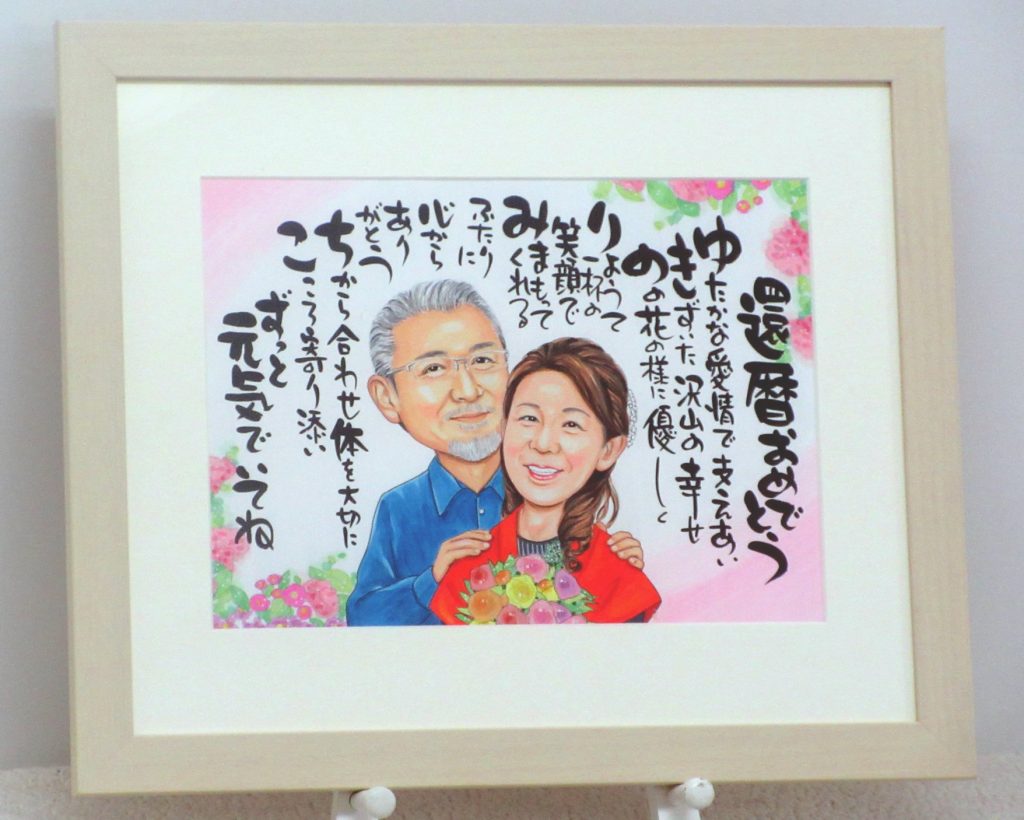 還暦おめでとう
ゆたかな愛情で支えあい
きずいた沢山の幸せ
のの花の様に優しく
りょうて
一杯の
笑顔で
みまもって
くれる
ふたりに
心から
あり
がとう
ちから合わせ体を大切に
こころ寄り添い
ずっと
元気でいてね